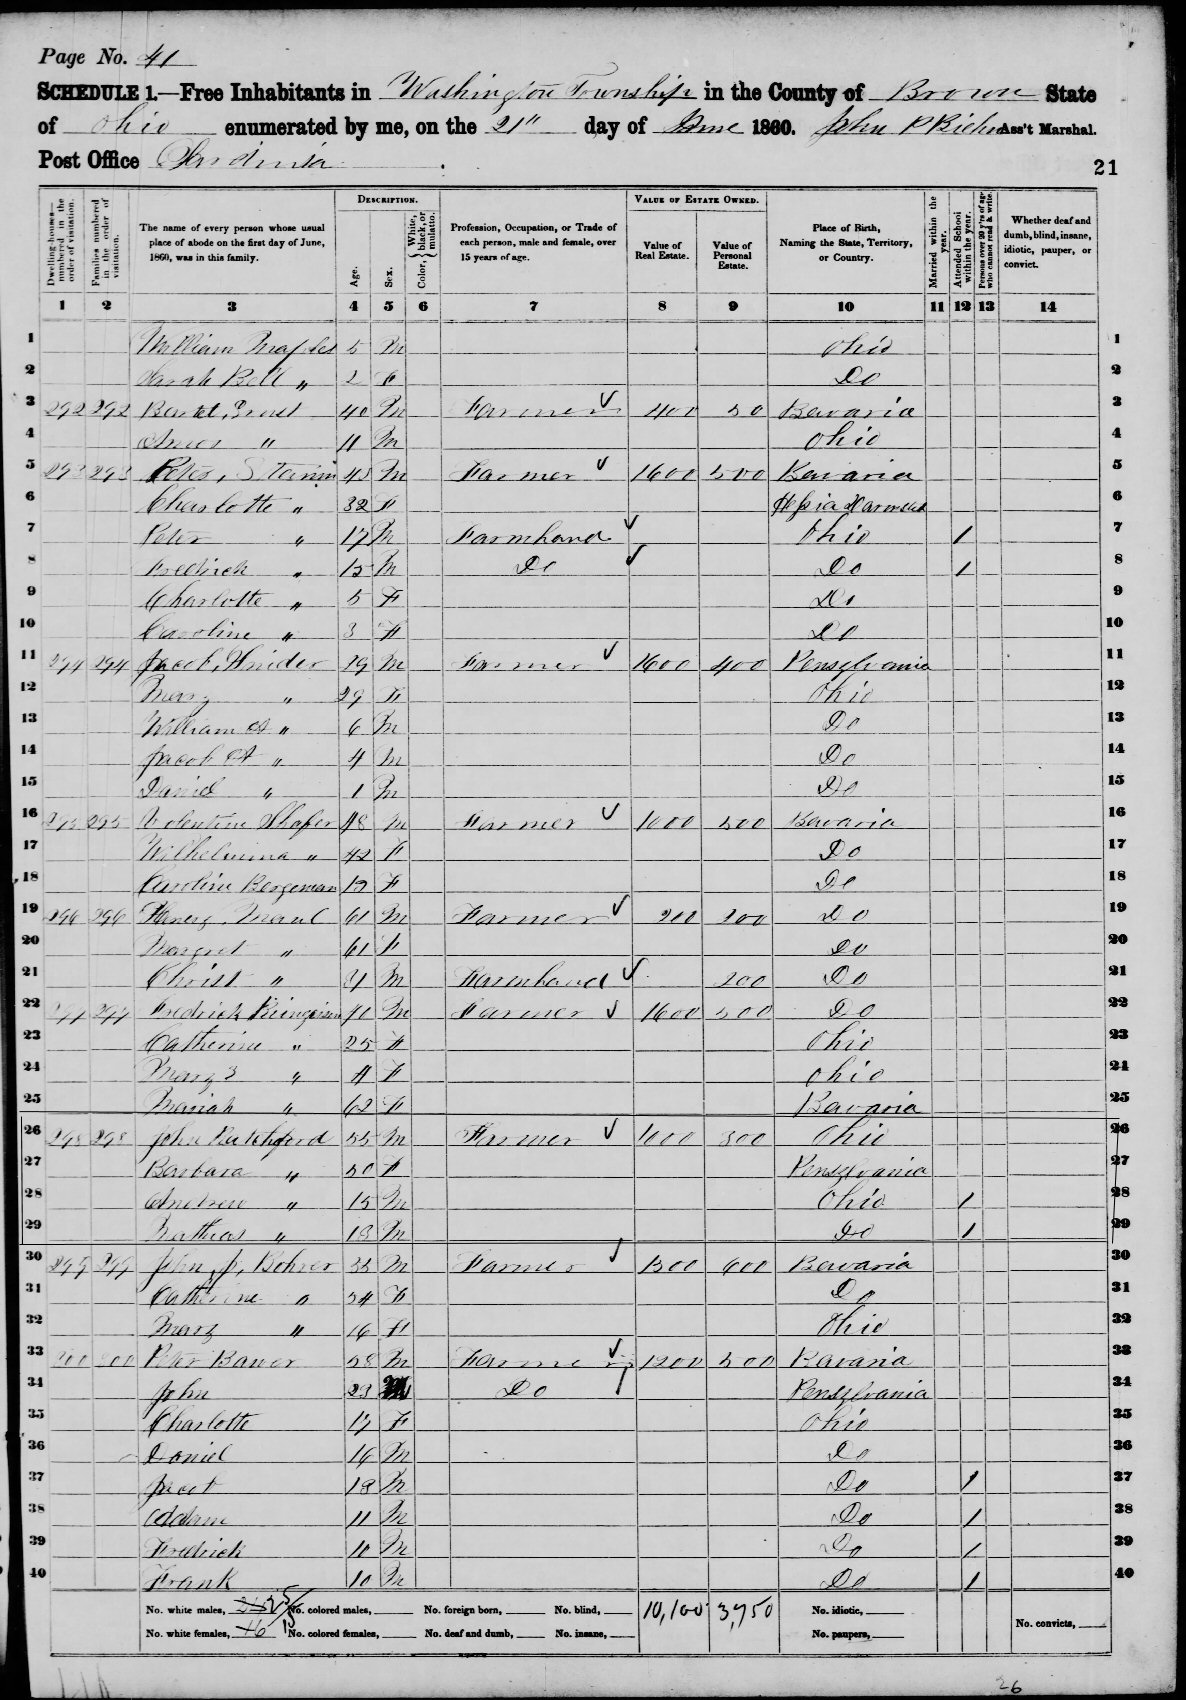 Page No. 41
SCHEDULE 1.—Free Inhabitants in Washington Township in the County of Brown State
of Ohio enumerated by me, on the 21" day of June 1860. John P Biehn Ass't Marshal.
Post Office Sardinia
21
Dwelling-houses—numbered in the order of visitation.
Families numbered in the order of visitation.
The name of every person whose usual place of abode on the first day of June, 1860, was in this family.
DESCRIPTION.
Age.
Sex.
Color, { White, black, or mulatto.
Profession, Occupation, or Trade of each person, male and female, over 15 years of age.
VALUE OF ESTATE OWNED.
Value of Real Estate.
Value of Personal Estate.
Place of Birth, Naming the State, Territory, or Country.
Married within the year.
Attended School within the year.
Persons over 20 y'rs of age who cannot read & write.
Whether deaf and dumb, blind, insane, idiotic, pauper, or convict.
1 2 3 4 5 6 7 8 9 10 11 12 13 14
1 William Maples 5 M Ohio 1
2 Sarah Bell " 2 F Do 2
3 292 292 40 M Farmer 400 50 Bavaria 3
4 " 11 M Ohio 4
5 293 293 48 M Farmer 1600 500 Bavaria 5
6 Charlotte " 32 F 6
7 Peter " 17 M Farmhand Ohio 1 7
8 Fredrick " 15 M Do Do 1 8
9 Charlotte " 5 F Do 9
10 Caroline " 3 F Do 10
11 294 294 Jacob Snider 29 M Farmer 1600 400 Pensylvania 11
12 Mary " 29 F Ohio 12
13 William A " 6 M Do 13
14 Jacob A " 4 M Do 14
15 Daniel " 1 M Do 15
16 295 295 Volentine Shafer 48 M Farmer 1000 500 Bavaria 16
17 Wilhelmina " 42 F Do 17
18 Caroline Bergeman F Do 18
19 296 296 Henry Maul 61 M Farmer 200 200 Do 19
20 Margret " 61 F Do 20
21 Christ " M Farmhand 200 Do 21
22 297 297 Fredrick M Farmer 1600 500 Do 22
23 Catherine " 25 F Ohio 23
24 Mary " 4 F Ohio 24
25 Mariah " 62 F Bavaria 25
26 298 298 John Rutchford 55 M Farmer 1000 300 Ohio 26
27 Barbara " 50 F Pensylvania 27
28 Andrew " 15 M Ohio 1 28
29 " 13 M Do 1 29
30 299 299 John J, Bohrer 35 M Farmer 1500 600 Bavaria 30
31 Catherine " 34 F Do 31
32 Mary " 16 F Ohio 32
33 300 300 Peter Bawer 58 M Farmer 1200 500 Bavaria 33
34 John 23 M Do Pensylvania 34
35 Charlotte 17 F Ohio 35
36 Daniel 16 M Do 36
37 Jacob 13 M Do 1 37
38 Addam 11 M Do 1 38
39 Fredrick 10 M Do 1 39
40 Frank 10 M Do 1 40
No. white males, No. colored males, No. foreign born, No. blind, 10,100 3,750 No. idiotic,
No. white females, 16 No. colored females, No. deaf and dumb, No. insane, No. paupers, No. convicts,
26